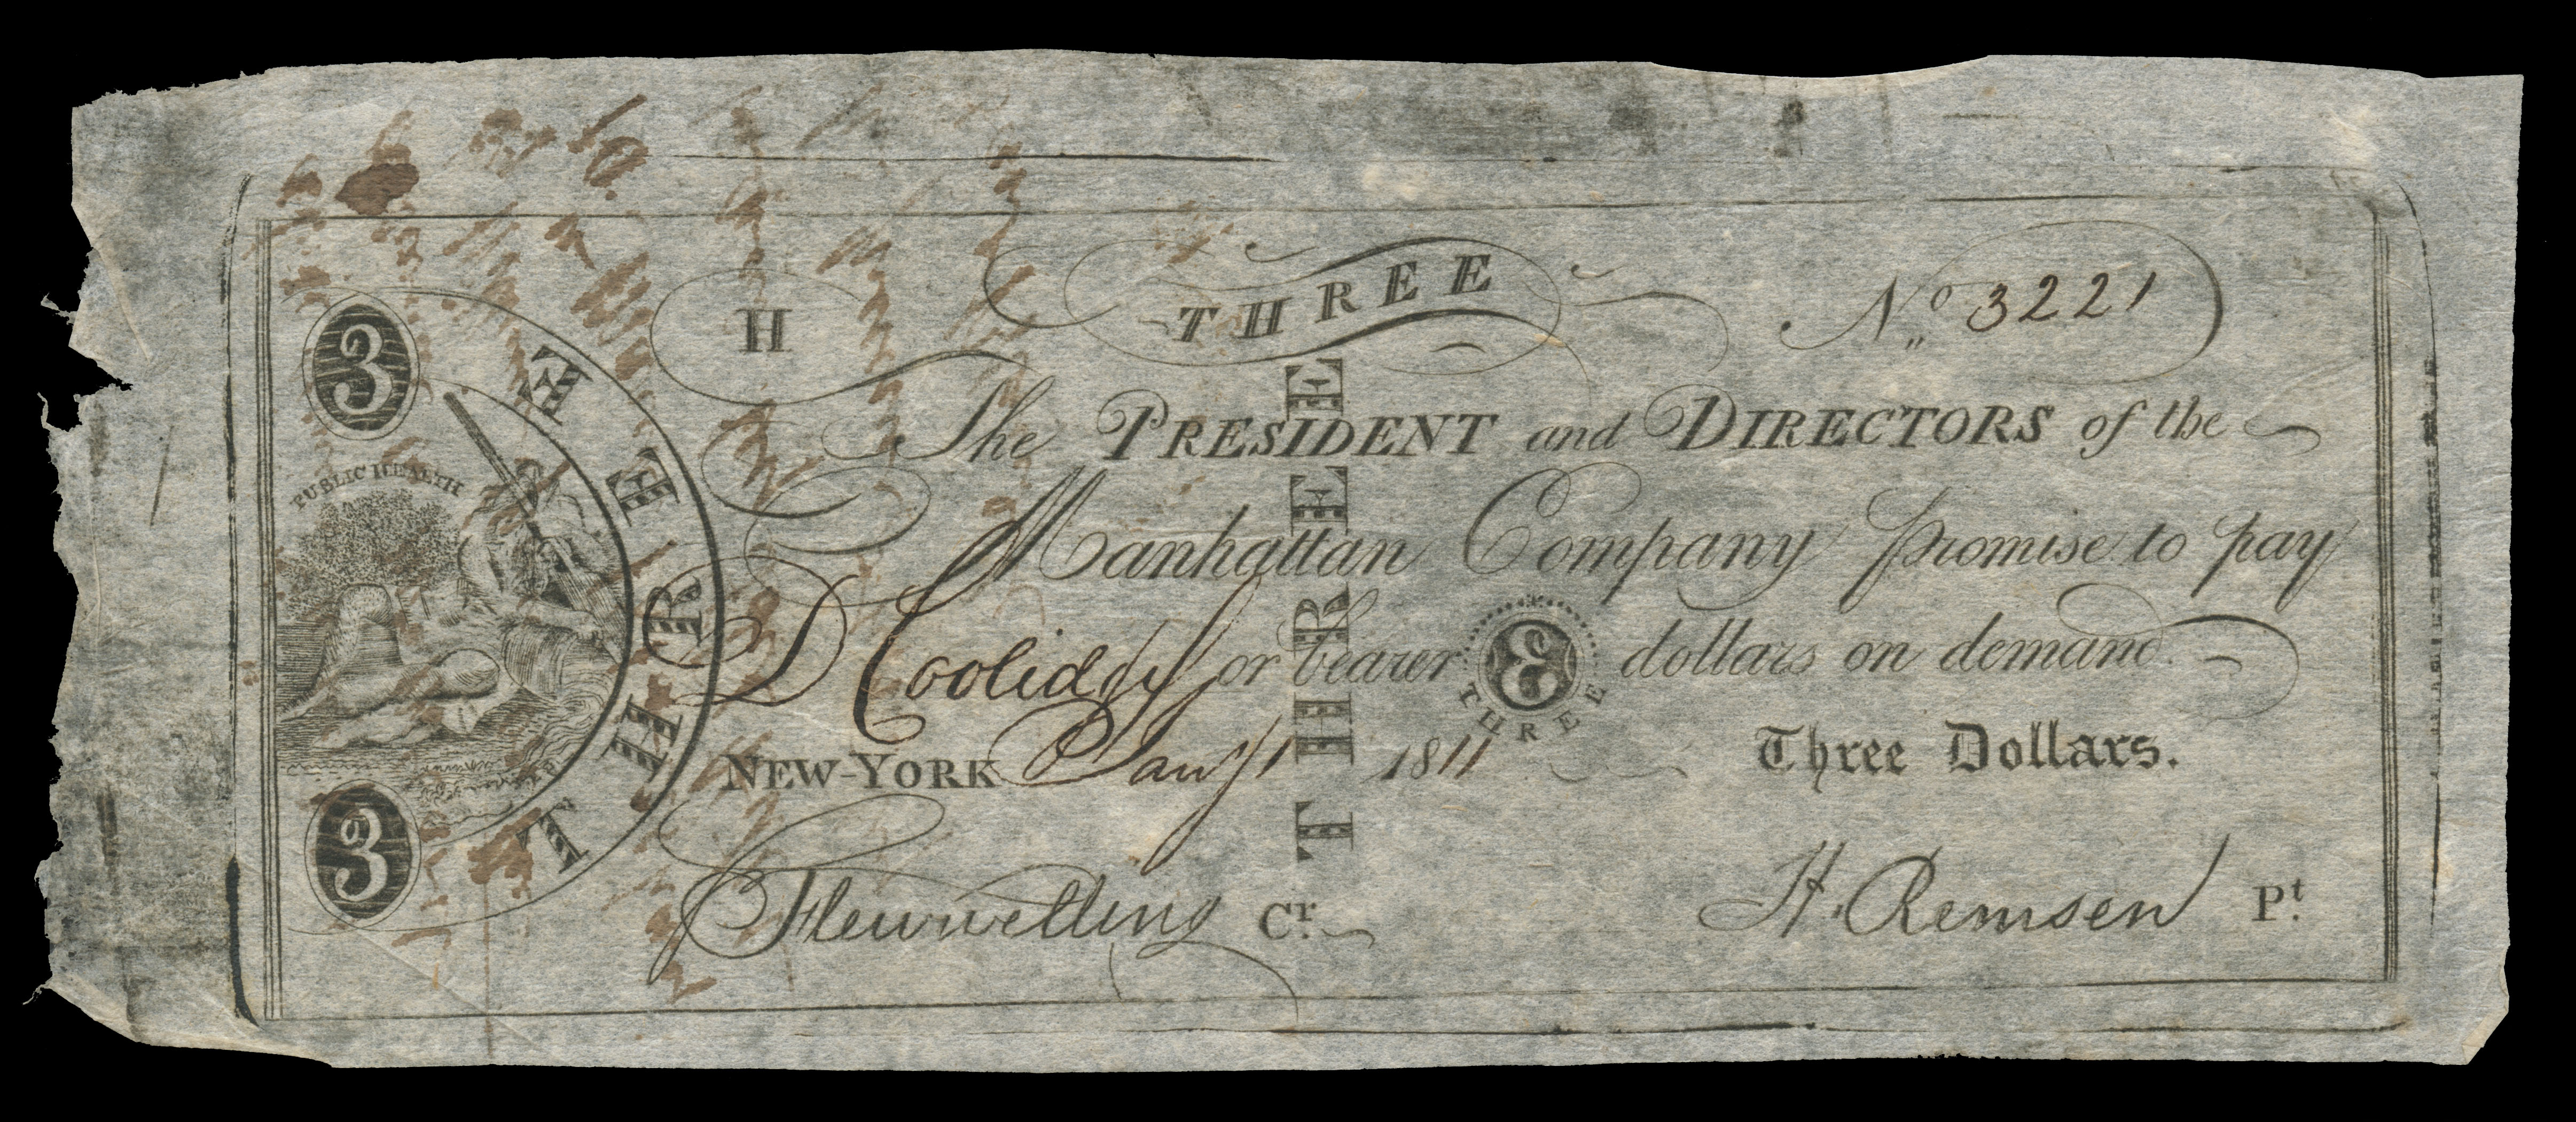 THREE
H
Nº 3221
3
THREE
PUBLIC HEALTH
THREE
The PRESIDENT and DIRECTORS of the
Manhattan Company promise to pay
D Coolidge or bearer 3 dollars on demand.
THREE
NEW-YORK Jany 1 1811 Three Dollars.
3
Flewwelling Cr. H. Remsen Pt.